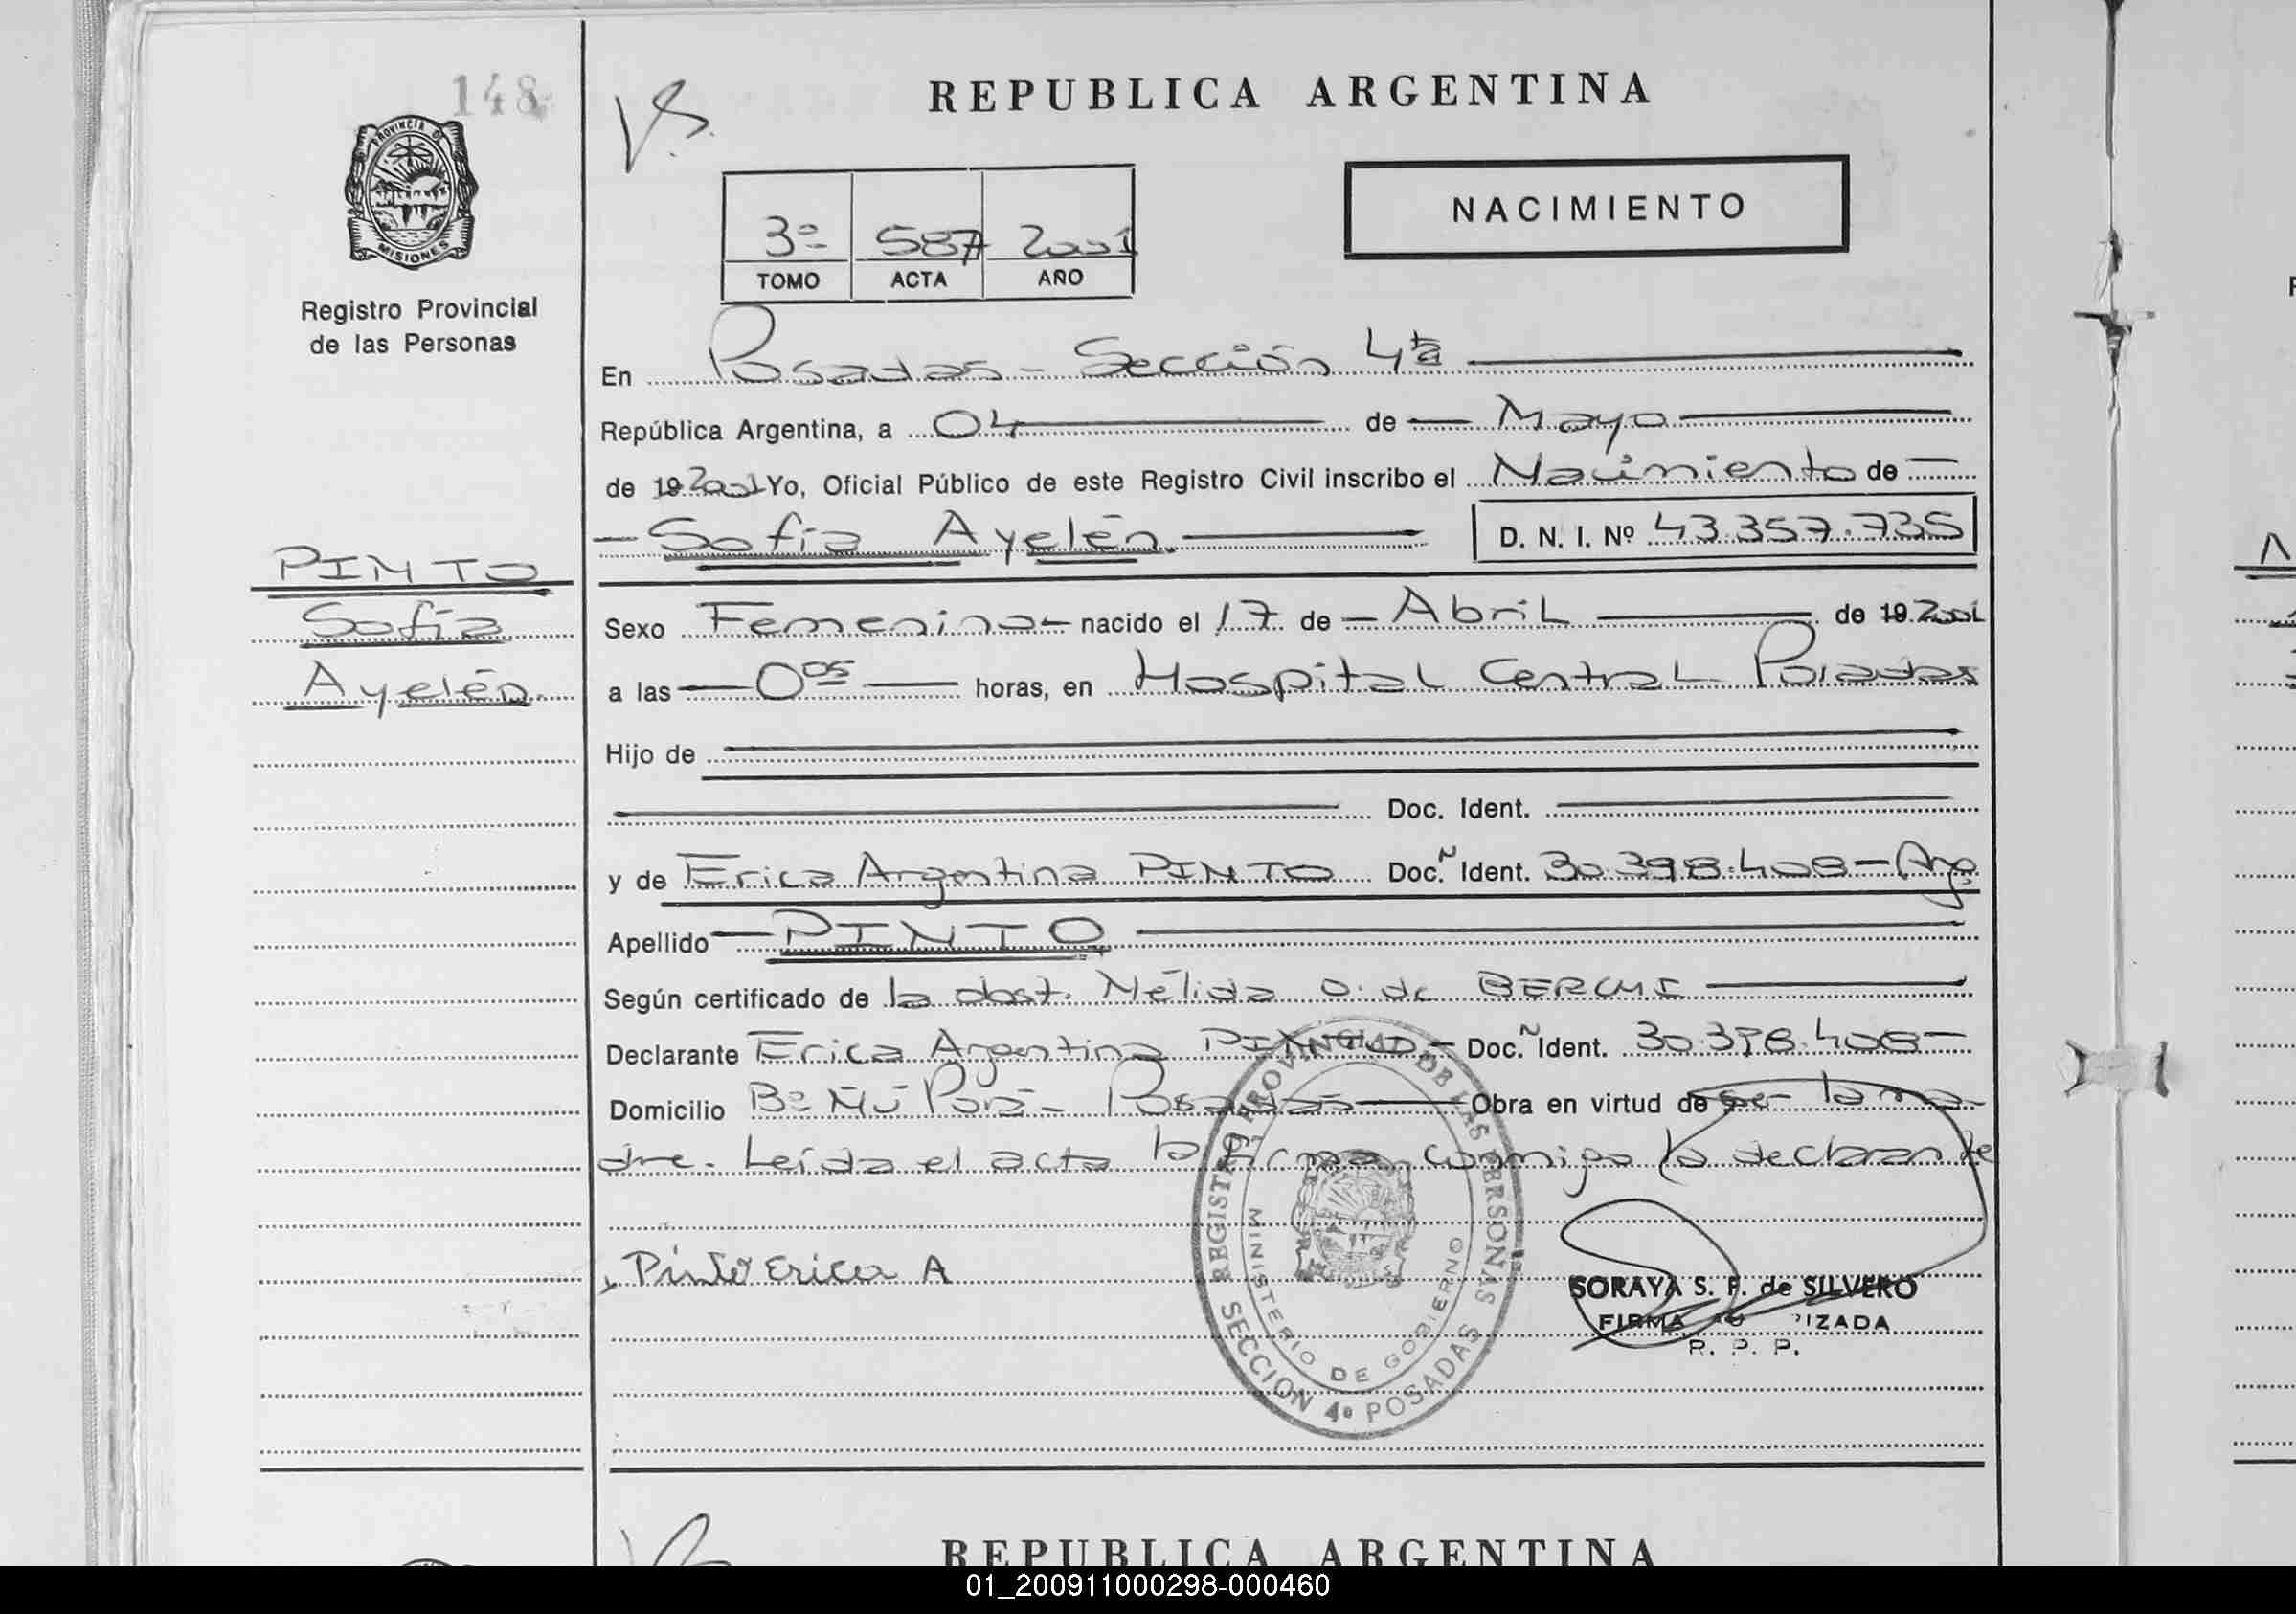 148
PROVINCIA DE
MISIONES
Registro Provincial
de las Personas
REPUBLICA ARGENTINA
NACIMIENTO
3º 587 2001
TOMO ACTA AÑO
En Posadas - Sección 4ta
República Argentina, a 04 de Mayo
de 19 2001 Yo, Oficial Público de este Registro Civil inscribo el Nacimiento de
Sofía Ayelén. D. N. I. Nº 43.357.735
PINTO
Sofía
Ayelén.
Sexo Femenina nacido el 17 de Abril de 19 2001
a las 0 05 horas, en Hospital Central Posadas
Hijo de
Doc. Ident.
y de Erica Argentina PINTO Doc. N Ident. 30.398.408 - Arg.
Apellido PINTO
Según certificado de la obst. Nélida O. de
Declarante Erica Argentina PINTO Doc. N Ident. 30.398.408
Domicilio Bº Ñú Porá - Posadas Obra en virtud de ser la ma-
dre. Leída el acta la firma conmigo la declarante
Pinto Erica A
REGISTRO PROVINCIAL DE LAS PERSONAS
MINISTERIO DE GOBIERNO
SECCION 4º POSADAS
SORAYA S. F. de SILVERO
FIRMA IZADA
R. P. P.
REPUBLICA ARGENTINA
01_200911000298-000460